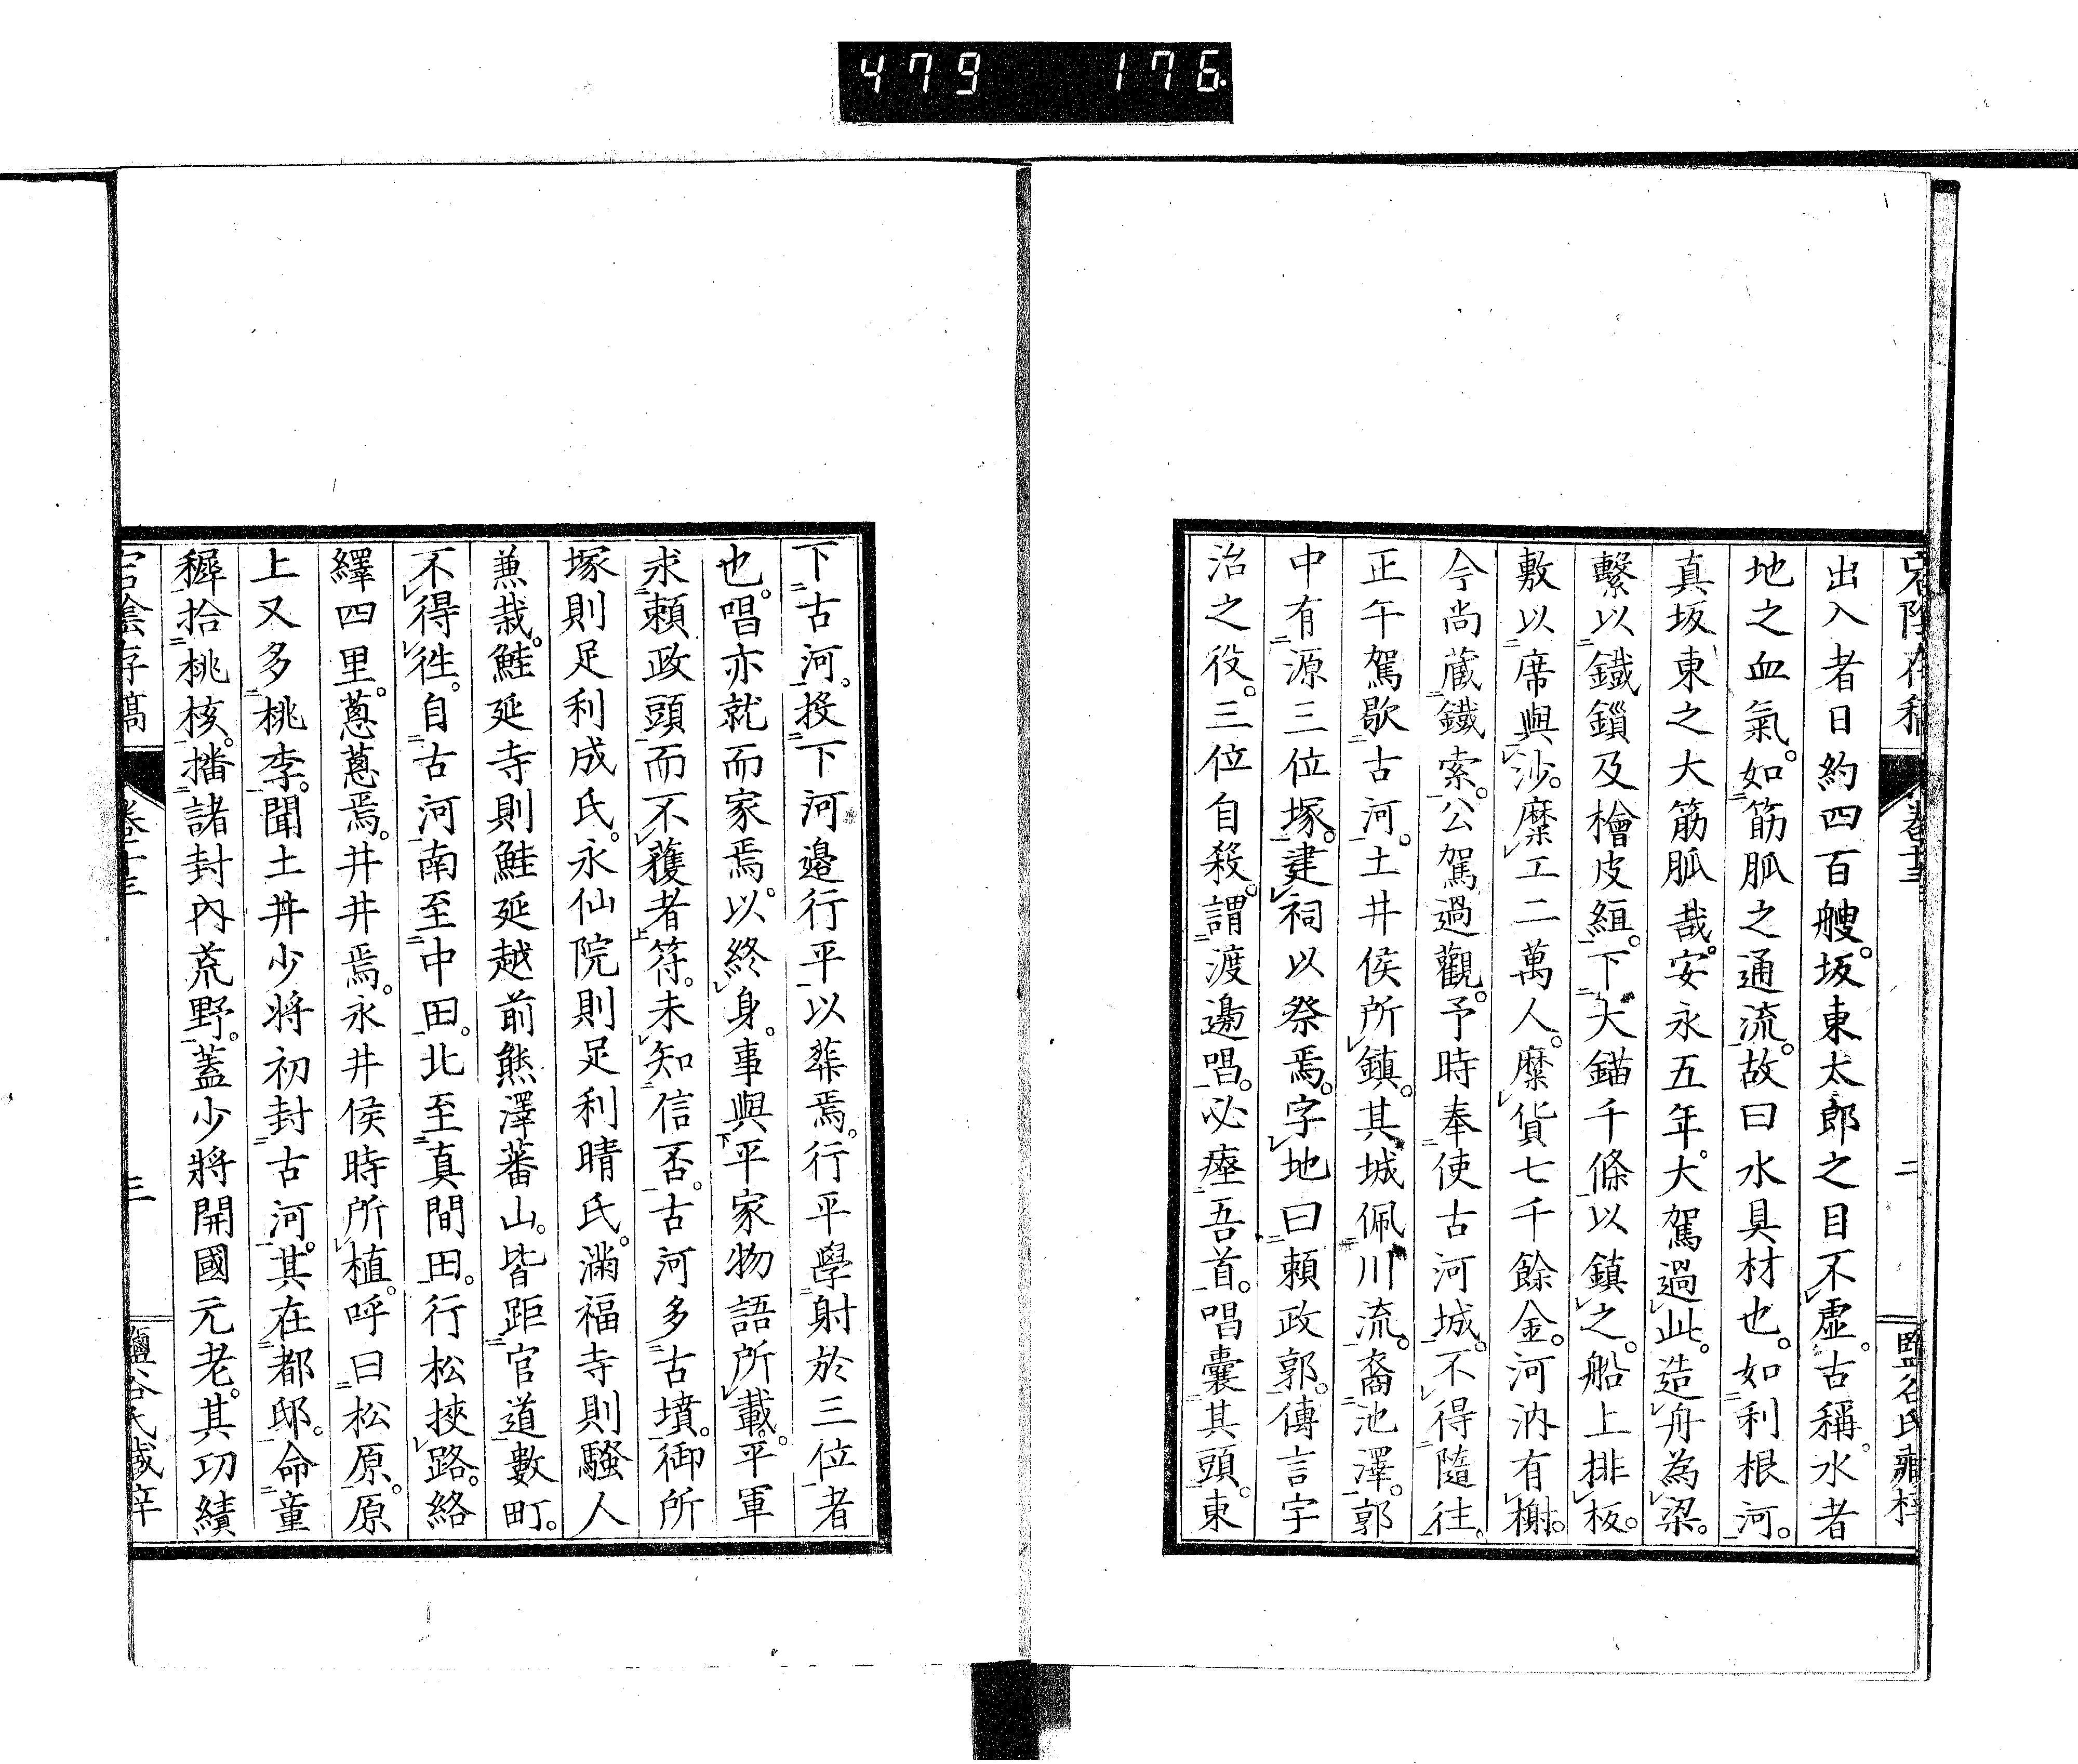 479 176.
宕陰存稿 卷十三 二 鹽谷氏藏梓
出入者日約四百艘。坂東太郎之目不虛。古稱。水者
地之血氣。如筋脈之通流。故曰水具材也。如利根河。
真坂東之大筋脈哉。安永五年。大駕過此。造舟為梁。
繫以鐵鎖及檜皮絚。下大錨千條以鎮之。船上排板。
敷以席與沙。糜工二萬人。糜貨七千餘金。河汭有榭。
今尚藏鐵索。公駕過觀。予時奉使古河城。不得隨往。
正午駕歇古河。土井侯所鎮。其城佩川流。裔池澤。郭
中有源三位塚。建祠以祭焉。字地曰賴政郭。傳言宇
治之役。三位自殺。謂渡邊唱。必瘞吾首。唱囊其頭。東
下古河。投下河邉行平以葬焉。行平學射於三位者
也。唱亦就而家焉。以終身。事與平家物語所載。平軍
求賴政頭而不獲者符。未知信否。古河多古墳。御所
塚則足利成氏。永仙院則足利晴氏。滿福寺則騷人
兼栽。鮭延寺則鮭延越前熊澤蕃山。皆距官道數町。
不得徃。自古河南至中田。北至真間田。行松挾路。絡
繹四里。蔥蔥焉。井井焉。永井侯時所植。呼曰松原。原
上又多桃李。聞土井少將初封古河。其在都邸。命童
穉拾桃核。播諸封內荒野。蓋少將開國元老。其功績
宕陰存稿 卷十三 三 鹽谷氏藏梓